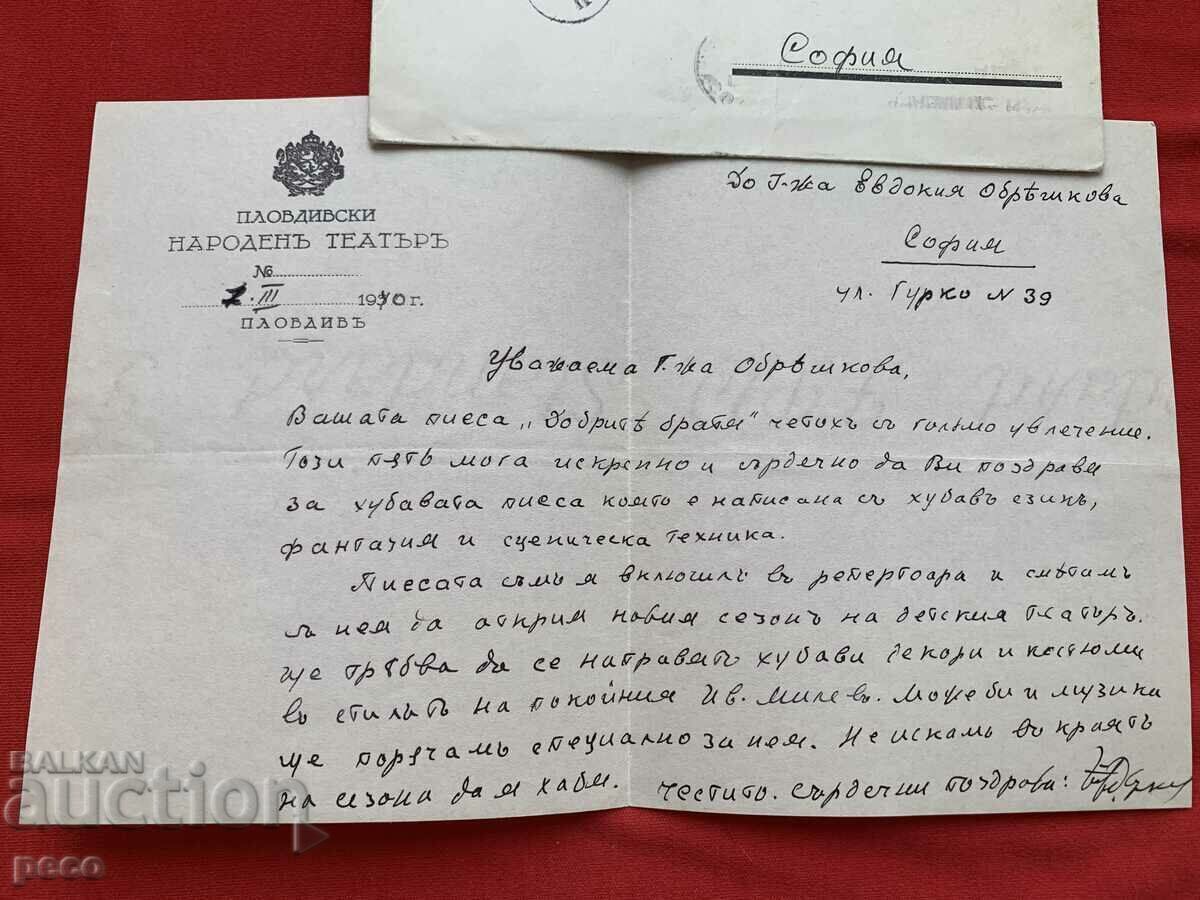 София
ПЛОВДИВСКИ
НАРОДЕНЪ ТЕАТЪРЪ
№
1. III 1940 г.
ПЛОВДИВЪ
До Г-жа Евдокия Обрѣшкова
София
ул. Гурко N 39
Уважаема Г-жа Обрѣшкова,
Вашата пиеса „Добритѣ братя" четохъ съ голѣмо увлечение.
Този пѫть мога искренно и сърдечно да Ви поздравя
за хубавата пиеса която е написана съ хубавъ езикъ,
фантазия и сценическа техника.
Пиесата съмъ я включилъ въ репертоара и смѣтамъ
съ нея да открия новия сезонъ на детския театъръ.
Ще трѣбва да се направятъ хубави декори и костюми
въ стилътъ на покойния Ив. Милевъ. Може би и музика
ще поръчамъ специално за нея. Не искамъ въ краятъ
на сезона да я хабя. Честито. Сърдечни поздрави:
BALKAN
auction
peco